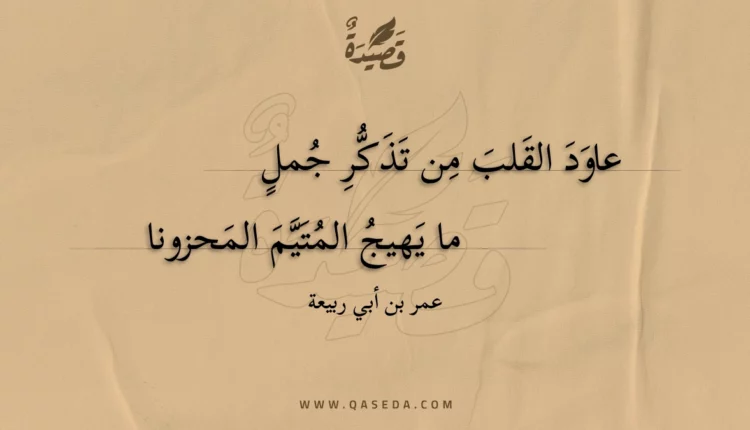 قَصِيدَةٌ
عاوَدَ القَلبَ مِن تَذَكُّرِ جُملٍ
ما يَهيجُ المُتَيَّمَ المَحزونا
عمر بن أبي ربيعة
WWW.QASEDA.COM